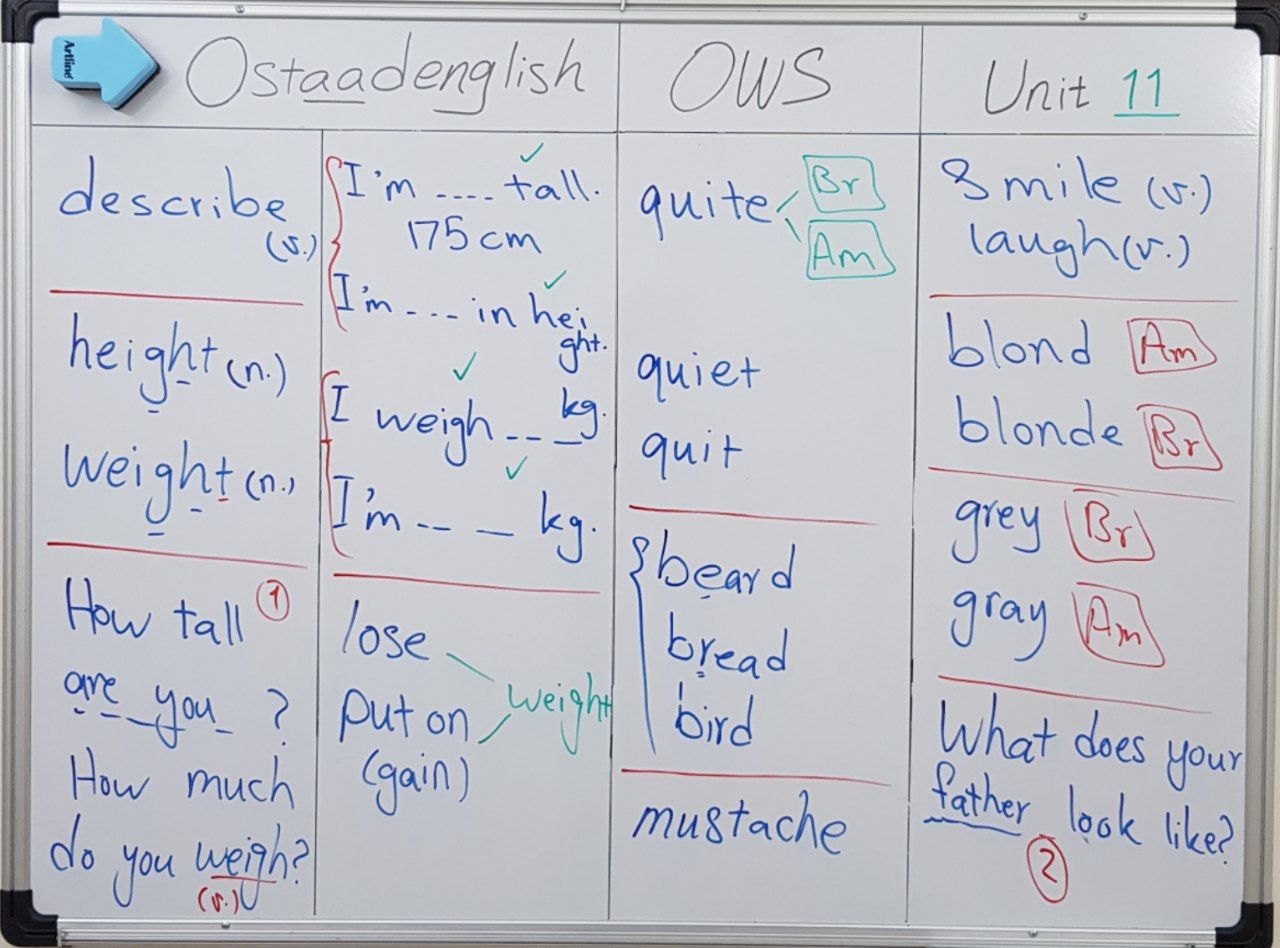 Artline
Ostaadenglish
OWS
Unit 11
describe
(v.)
height (n.)
weight (n.)
How tall ①
are you ?
How much
do you weigh?
(v.)
I'm .... tall.
175 cm
I'm --- in hei
ght.
I weigh --- kg.
I'm --- kg.
lose
put on
(gain)
weight
quite
Br
Am
quiet
quit
beard
bread
bird
mustache
Smile (v.)
laugh (v.)
blond Am
blonde Br
grey Br
gray Am
What does your
father look like?
②